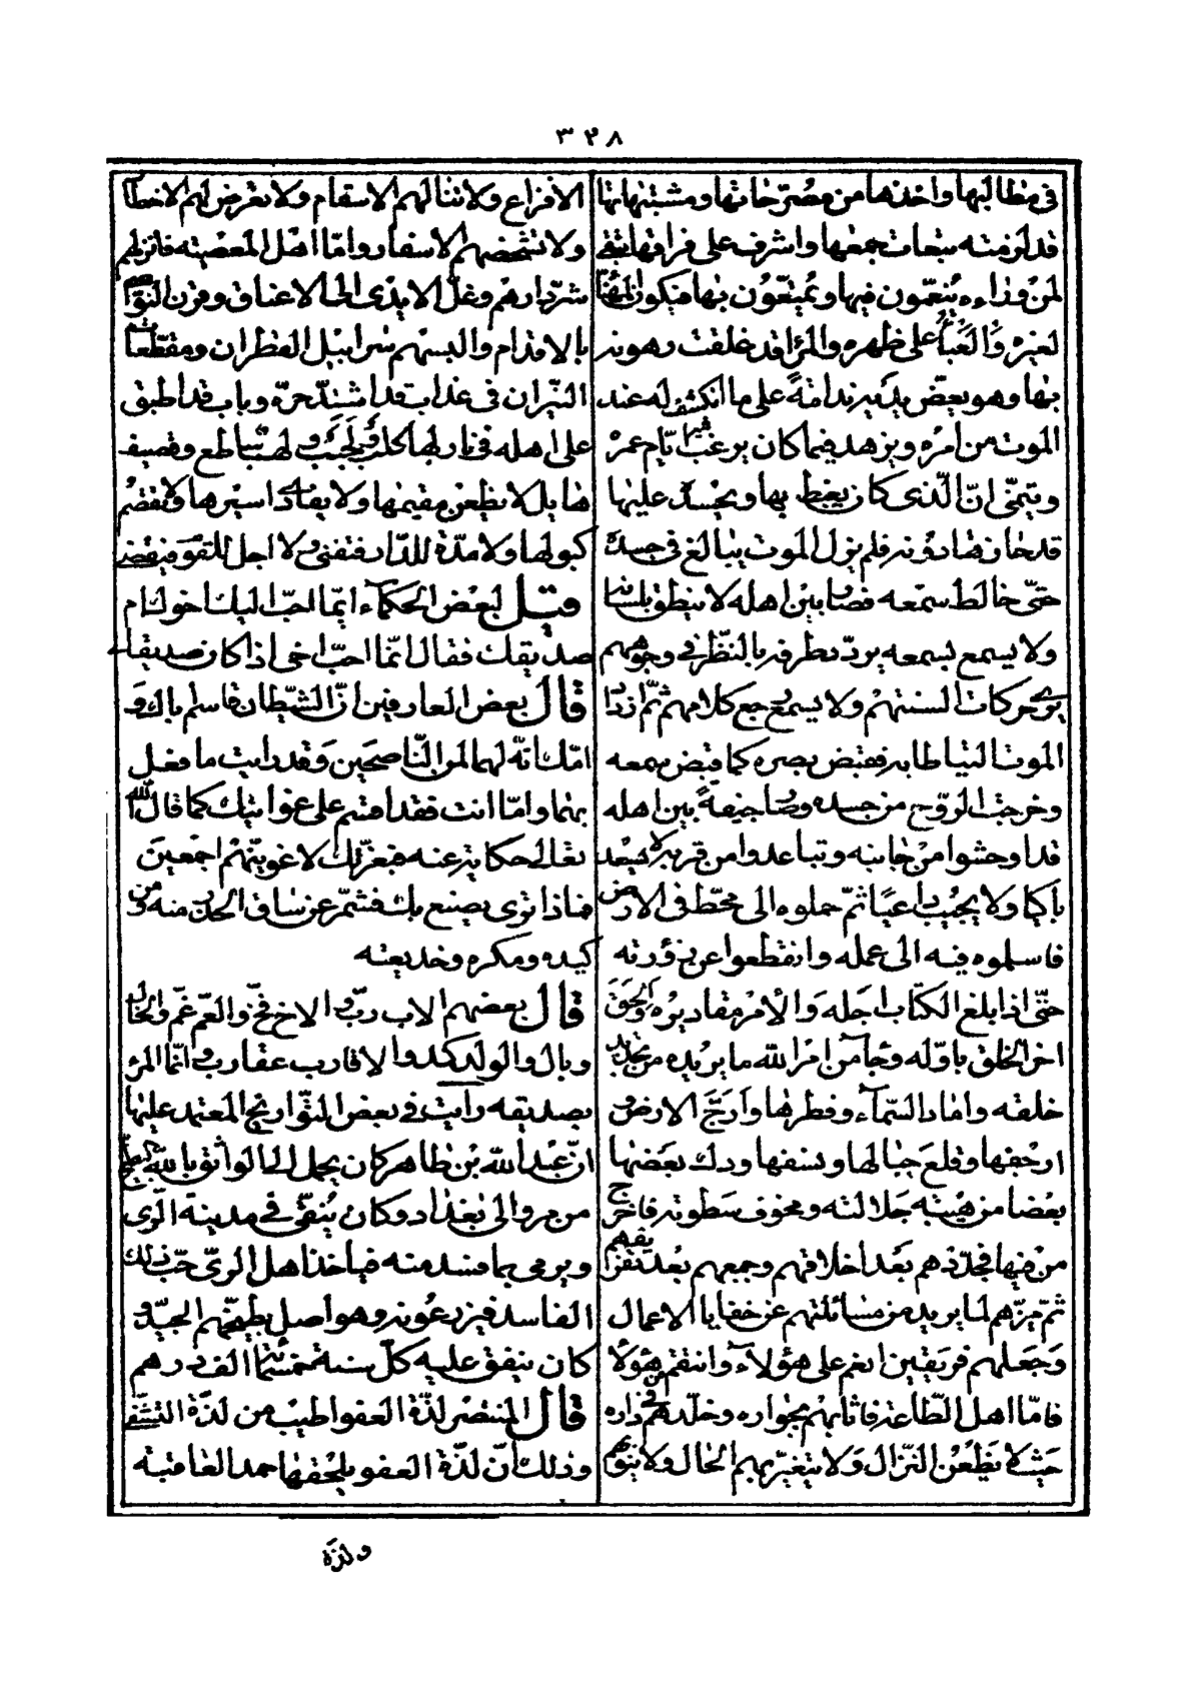 ٣٢٨
في مطالبها واخذها من مصرحاتها ومشتبهاتها
قد لزمته تبعات جمعها واشرف على فراقها تبقى
لمن وراءه ينعمون فيها ويتمتعون بها فيكون المهنأ
لغيره والعبأ على ظهره والمرء قد غلقت رهونه
بها وهو يعض يده ندامة على ما انكشف له عند
الموت من امره ويزهد فيما كان يرغب فيه ايام عمره
ويتمنى ان الذى كان يغبطه بها ويحسده عليها
قد حازها دونه فلم يزل الموت يبالغ فى جسده
حتى خالط سمعه فصار بين اهله لا ينطق بلسانه
ولا يسمع بسمعه يردد طرفه بالنظر فى وجوههم
يرى حركات السنتهم ولا يسمع رجع كلامهم ثم ازداد
الموت التياطا به فقبض بصره كما قبض سمعه
وخرجت الروح من جسده وصار جيفة بين اهله
قد اوحشوا من جانبه وتباعدوا من قربه لا يسعد
باكيا ولا يجيب داعيا ثم حملوه الى مخط فى الارض
فاسلموه فيه الى عمله وانقطعوا عن زورته
حتى اذا بلغ الكتاب اجله والامر مقاديره والحق
اخر الخلق باوله وجاء من امر الله ما يريده من تجديد
خلقه واماد السماء وفطرها وارج الارض و
ارجفها وقلع جبالها ونسفها ودك بعضها
بعضا من هيبته جلالته ومخوف سطوته فاخرج
من فيها فجددهم بعد اخلاقهم وجمعهم بعد تفرقهم
ثم ميزهم لما يريد من مسائلتهم عن خفايا الاعمال
وجعلهم فريقين انعم على هؤلاء وانتقم من هؤلاء
فاما اهل الطاعة فاثابهم بجواره وخلدهم فى داره
حيث لا يظعن النزال ولا يتغير بهم الحال ولا تنوبهم
الافزاع ولا تنالهم الاسقام ولا تعرض لهم الاخطار
ولا تشخصهم الاسفار واما اهل المعصية فانزلهم
شر دار وهم وغل الايدى الى الاعناق وقرن النواصى
بالاقدام والبسهم سرابيل القطران ومقطعات
النيران فى عذاب قد اشتد حره وباب قد اطبق
على اهله فى نار لها كلب ولجب ولهب ساطع وقصيف
هايل لا يظعن مقيمها ولا يفادى اسيرها ولا تفصم
كبولها ولا مدة للدار فتفنى ولا اجل للقوم فيقضى
قيل لبعض الحكماء ايما احب اليك اخوك ام
صديقك فقال انما احب اخى اذا كان صديقا
قال بعض العارفين ان الشيطان قاسم باك و
امك انه لهما لمن الناصحين وقد رايت ما فعل
بهما واما انت فقد اقسم على غوايتك كما قال الله
تعالى حكاية عنه فبعزتك لاغوينهم اجمعين
فماذا ترى يصنع بك فشمر عن ساق الحذر منه ومن
كيده ومكره وخديعته
قال بعضهم الاب رب والاخ فخ والعم غم والخال
وبال والولد كمد والاقارب عقارب وانما المرء
بصديقه رايت فى بعض التواريخ المعتمد عليها
ان عبد الله بن طاهر كان يحمل الى الواثق بالله البطيخ
من مرو الى بغداد وكان ينقى فى مدينة الرى
ويرمى بما فسد منه فياخذ اهل الرى حب ذلك
الفاسد فيزرعونه وهو اصل بطيخهم الجيد و
كان ينفق عليه كل سنة خمسمائة الف درهم
قال المنتصر لذة العفو اطيب من لذة التشفى
وذلك ان لذة العفو يلحقها حمد العاقبة
ولذة